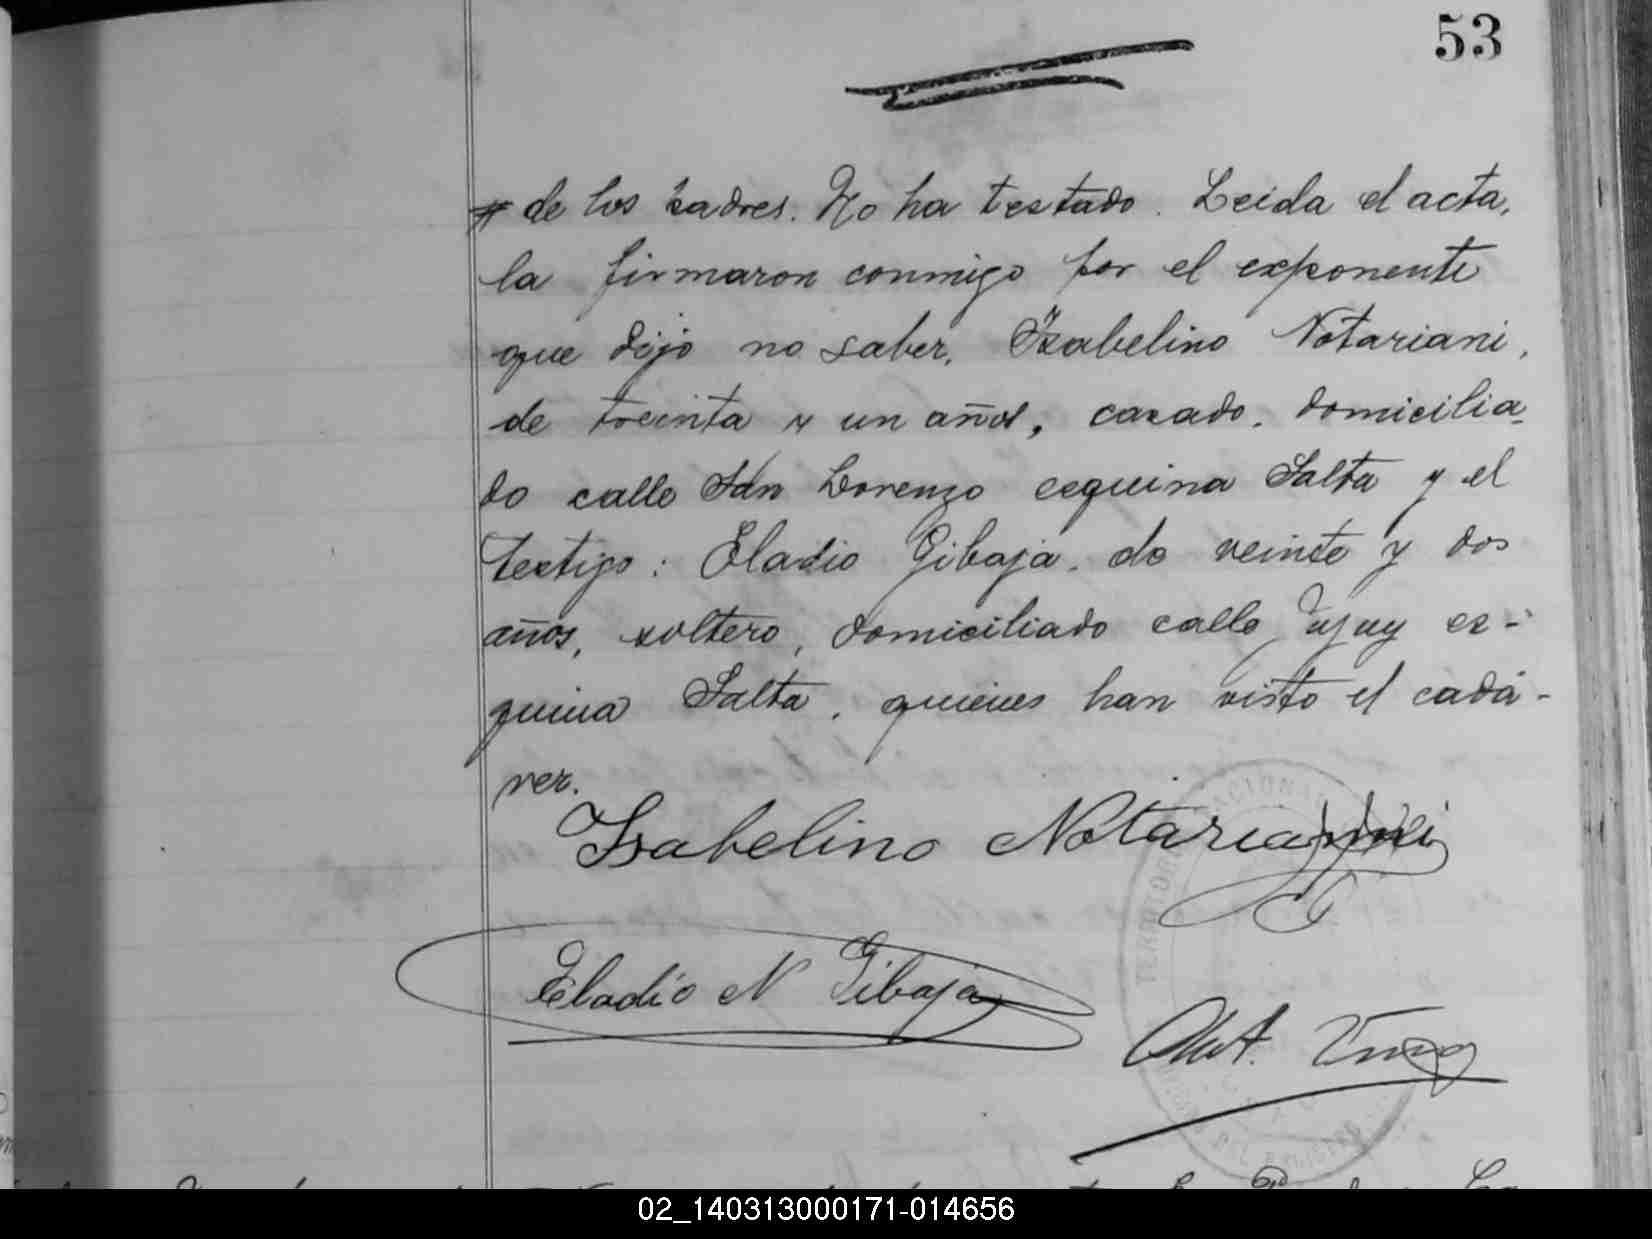 53
de los padres. No ha testado. Leida el acta,
la firmaron conmigo por el exponente
que dijo no saber, Isabelino Notariani,
de treinta y un años, casado, domicilia-
do calle San Lorenzo esquina Salta y el
testigo: Eladio Gibaja, de veinte y dos
años, soltero, domiciliado calle Jujuy es-
quina Salta, quienes han visto el cadá-
ver.
Isabelino Notariani
Eladio N Gibaja
02_140313000171-014656